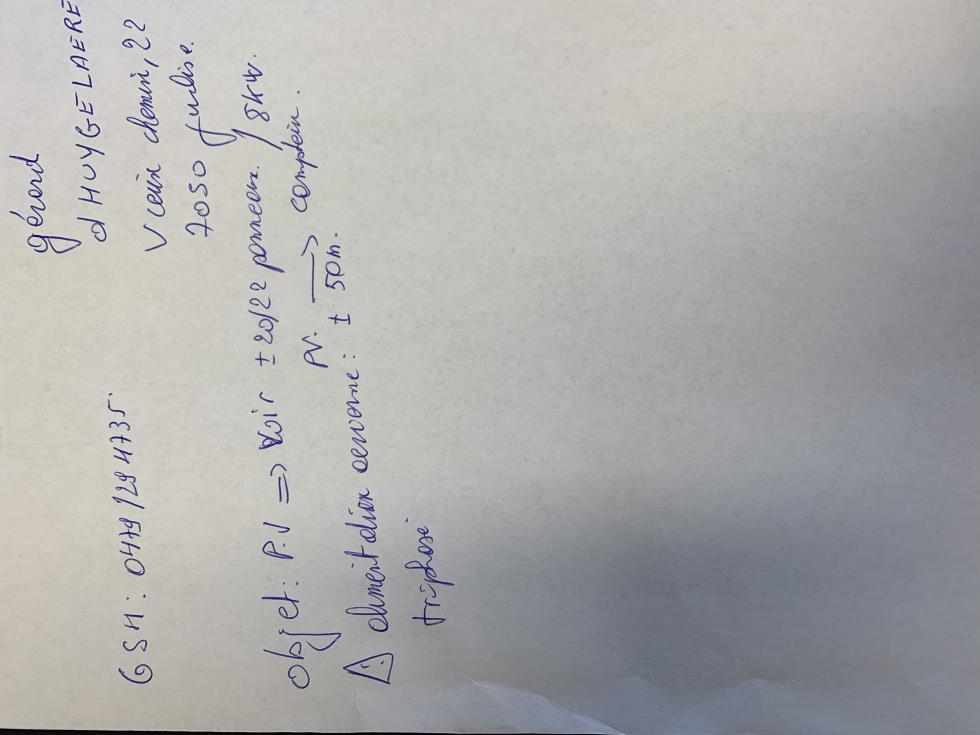 gérard
d HUYGELAERE
Vieux chemin, 22
7050 Jurbise.
GSM: 0479/294735
Objet: P.V => noir ± 20/22 panneaux / 8kW.
PV. → comptein.
⚠ alimentation : ± 50m.
triphasé